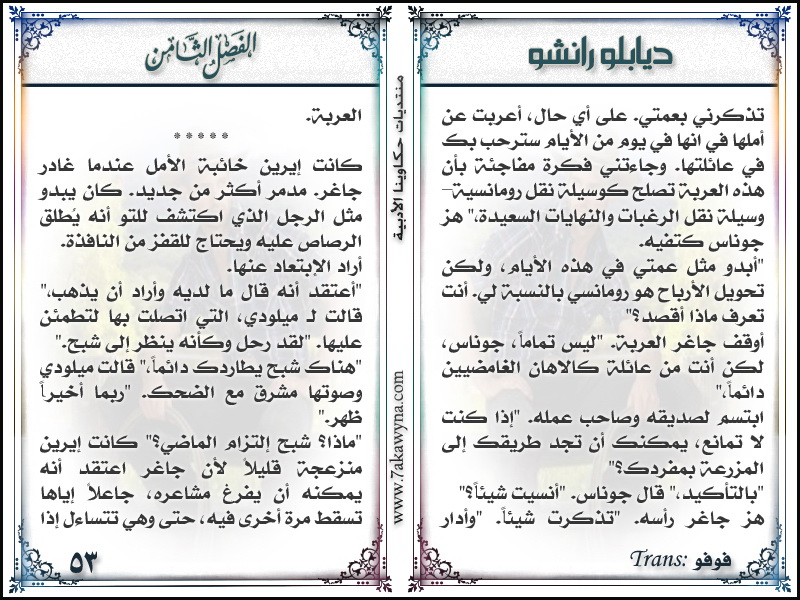 ديابلو رانشو
تذكرني بعمتي. على أي حال، أعربت عن
أملها في انها في يوم من الأيام سترحب بك
في عائلتها. وجاءتني فكرة مفاجئة بأن
هذه العربة تصلح كوسيلة نقل رومانسية-
وسيلة نقل الرغبات والنهايات السعيدة،" هز
جوناس كتفيه.
"أبدو مثل عمتي في هذه الأيام، ولكن
تحويل الأرباح هو رومانسي بالنسبة لي. أنت
تعرف ماذا أقصد؟"
أوقف جاغر العربة. "ليس تماماً، جوناس،
لكن أنت من عائلة كالاهان الغامضيين
دائماً،"
ابتسم لصديقه وصاحب عمله. "إذا كنت
لا تمانع، يمكنك أن تجد طريقك إلى
المزرعة بمفردك؟"
"بالتأكيد،" قال جوناس. "أنسيت شيئاً؟"
هز جاغر رأسه. "تذكرت شيئاً. "وأدار
Trans: فوفو
منتديات حكاوينا الأدبية
www.7akawyna.com
الفصل الثامن
العربة.
* * * * *
كانت إيرين خائبة الأمل عندما غادر
جاغر. مدمر أكثر من جديد. كان يبدو
مثل الرجل الذي اكتشف للتو أنه يُطلق
الرصاص عليه ويحتاج للقفز من النافذة.
أراد الإبتعاد عنها.
"أعتقد أنه قال ما لديه وأراد أن يذهب،"
قالت لـ ميلودي، التي اتصلت بها لتطمئن
عليها. "لقد رحل وكأنه ينظر إلى شبح."
"هناك شبح يطاردك دائماً،" قالت ميلودي
وصوتها مشرق مع الضحك. "ربما أخيراً
ظهر."
"ماذا؟ شبح إلتزام الماضي؟" كانت إيرين
منزعجة قليلاً لأن جاغر اعتقد أنه
يمكنه أن يفرغ مشاعره، جاعلاً إياها
تسقط مرة أخرى فيه، حتى وهي تتساءل إذا
٥٣